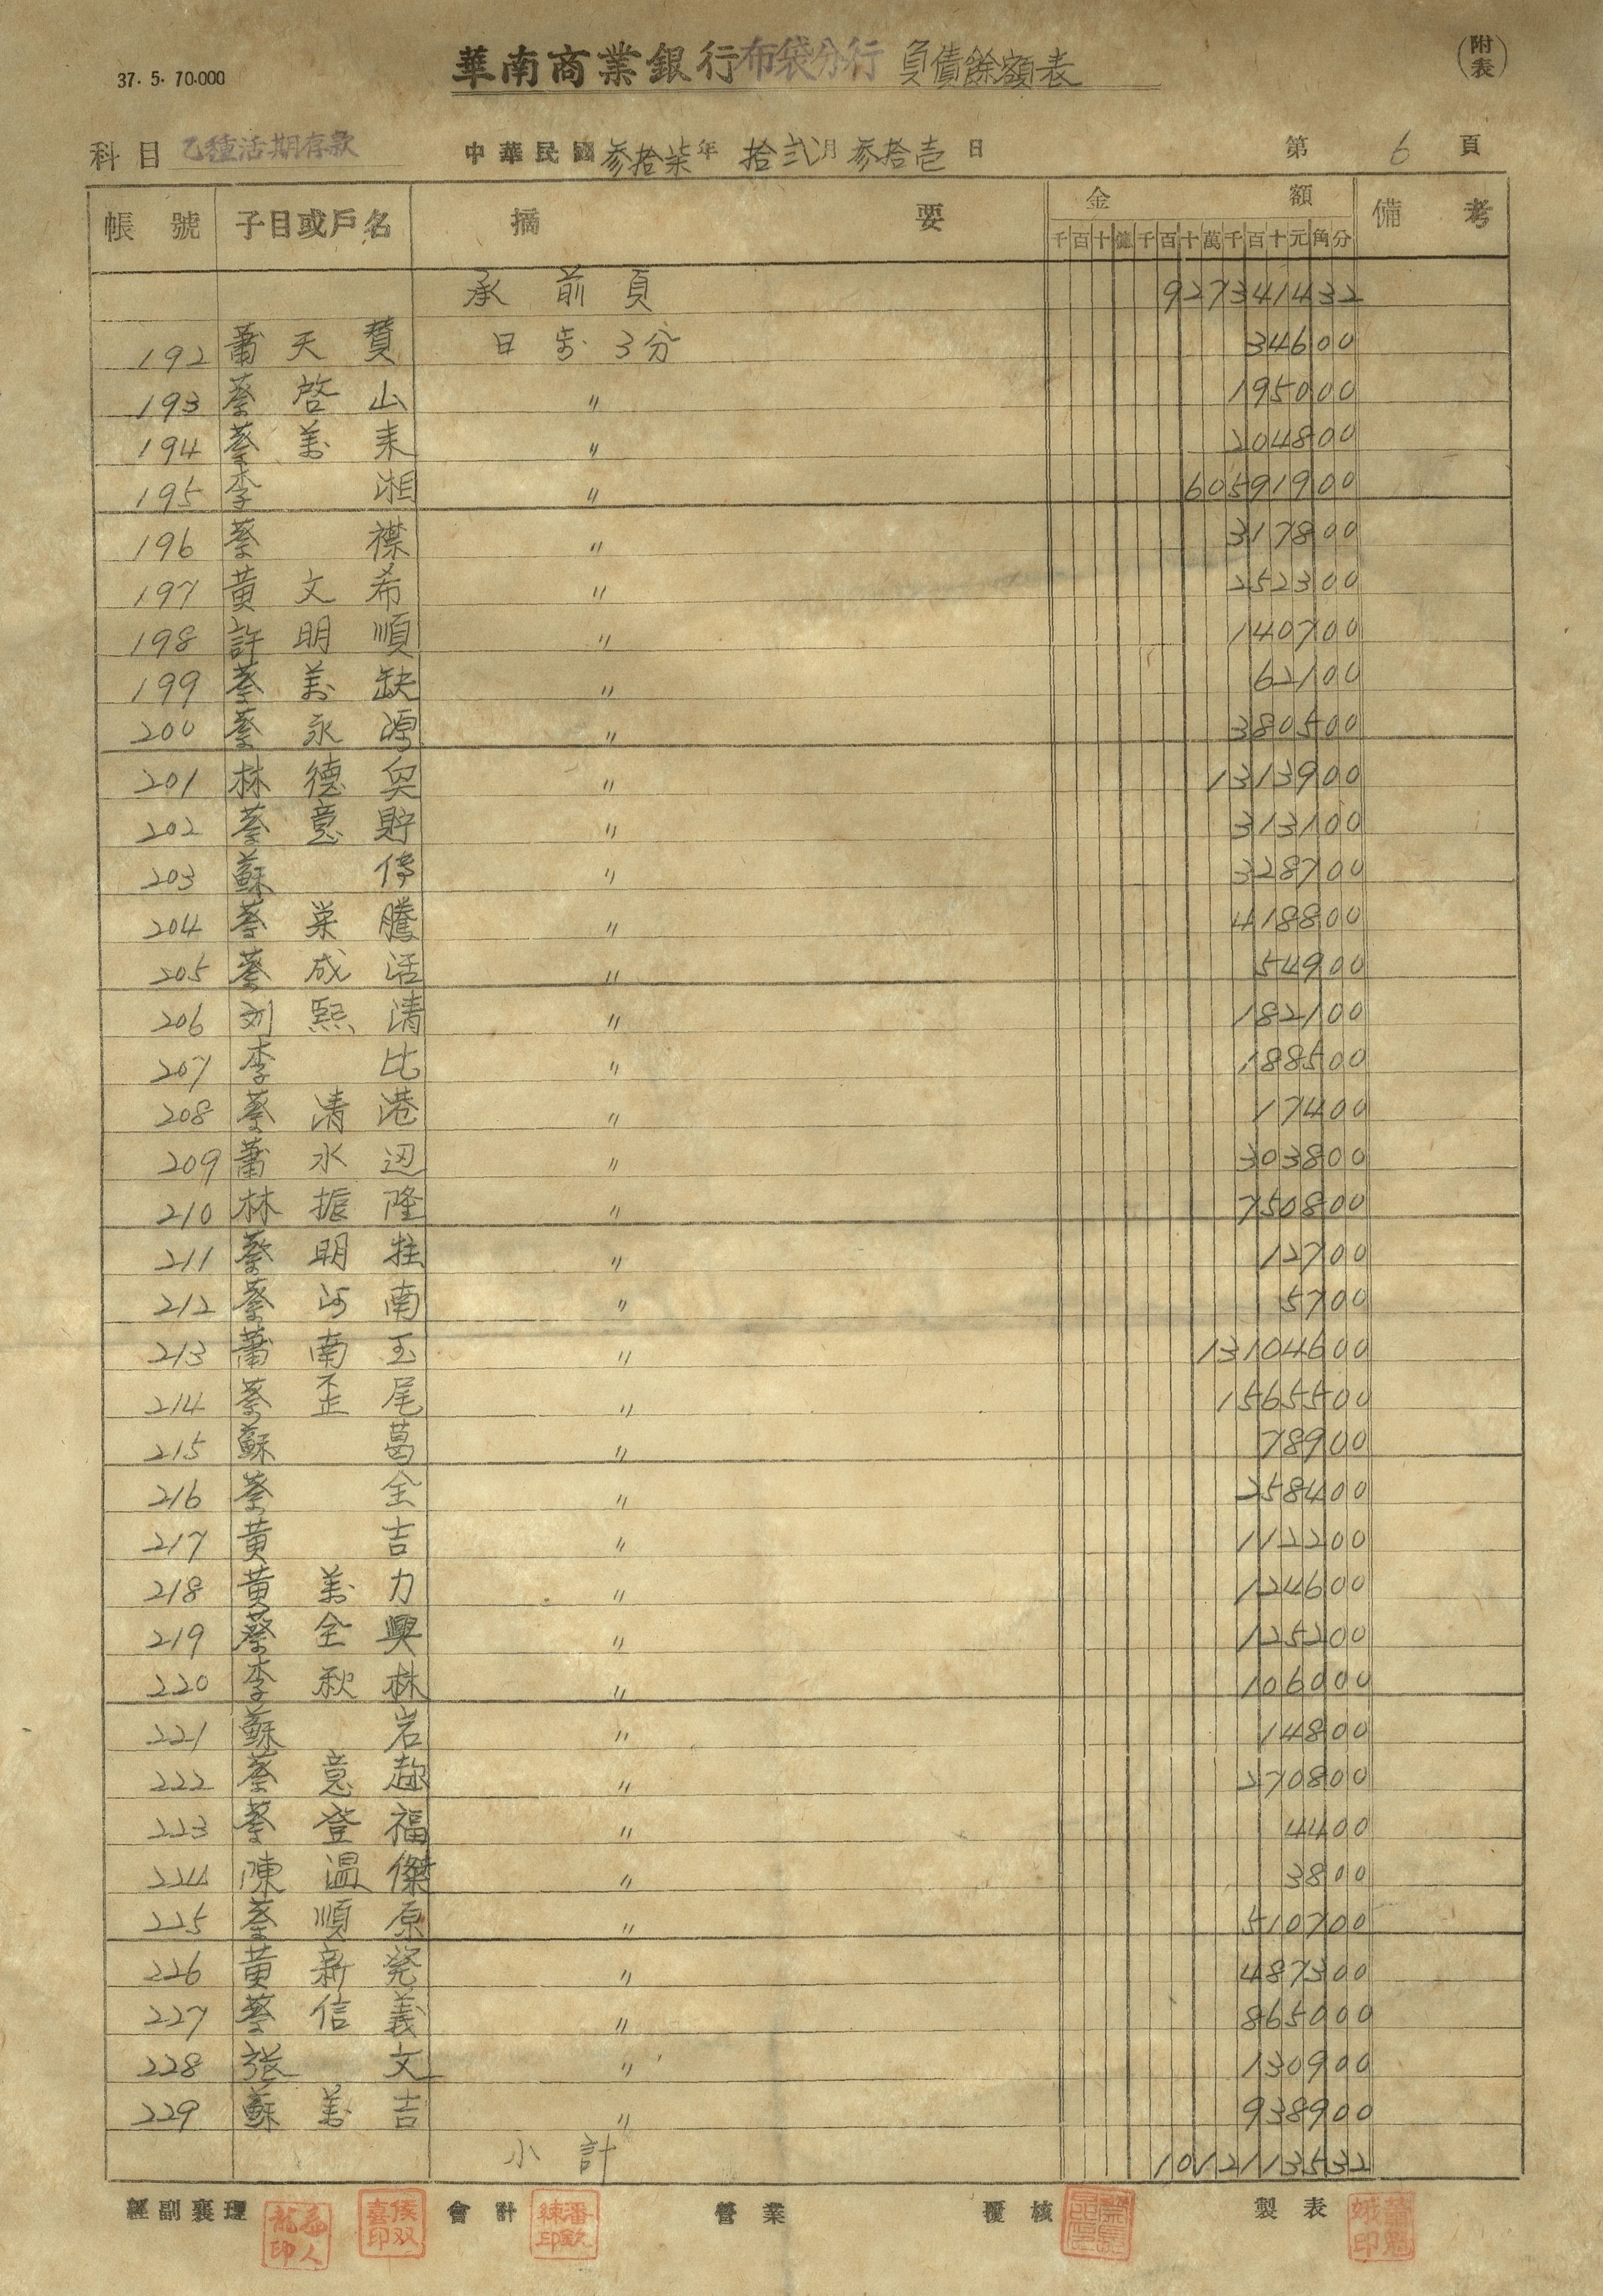 37. 5. 70.000
華南商業銀行布袋分行 負債餘額表
(附表)
科目 乙種活期存款 中華民國參拾柒年 拾弍月 參拾壱日 第 6 頁
帳號 子目或戶名 摘要 金額 備考
千百十億千百十萬千百十元角分
承前頁 927341432
192 蕭天賛 日歩 3分 34600
193 蔡啓山 〃 195000
194 蔡萬来 〃 204800
195 李湘 〃 60591900
196 蔡襟 〃 317800
197 黃文希 〃 252300
198 許明順 〃 140700
199 蔡萬缺 〃 62100
200 蔡永源 〃 380500
201 林德奐 〃 1313900
202 蔡意貯 〃 313100
203 蘇停 〃 328700
204 蔡菜騰 〃 418800
205 蔡成活 〃 54900
206 刘熙清 〃 182100
207 李比 〃 188500
208 蔡清港 〃 17400
209 蕭水辺 〃 303800
210 林振隆 〃 750800
211 蔡明 〃 12700
212 蔡河南 〃 5700
213 蕭南玉 〃 13104600
214 蔡歪尾 〃 1565500
215 蘇葛 〃 78900
216 蔡全 〃 258400
217 黃吉 〃 112200
218 黃萬力 〃 124600
219 蔡全興 〃 125200
220 李秋林 〃 106000
221 蘇岩 〃 14800
222 蔡意趂 〃 270800
223 蔡登福 〃 4400
224 陳溫傑 〃 3800
225 蔡順原 〃 510700
226 黃新発 〃 487300
227 蔡信義 〃 865000
228 張文 〃 130900
229 蘇萬吉 〃 938900
小計 1012113532
經副襄理 侯双喜印 會計 潘欽練印 營業 覆核 製表